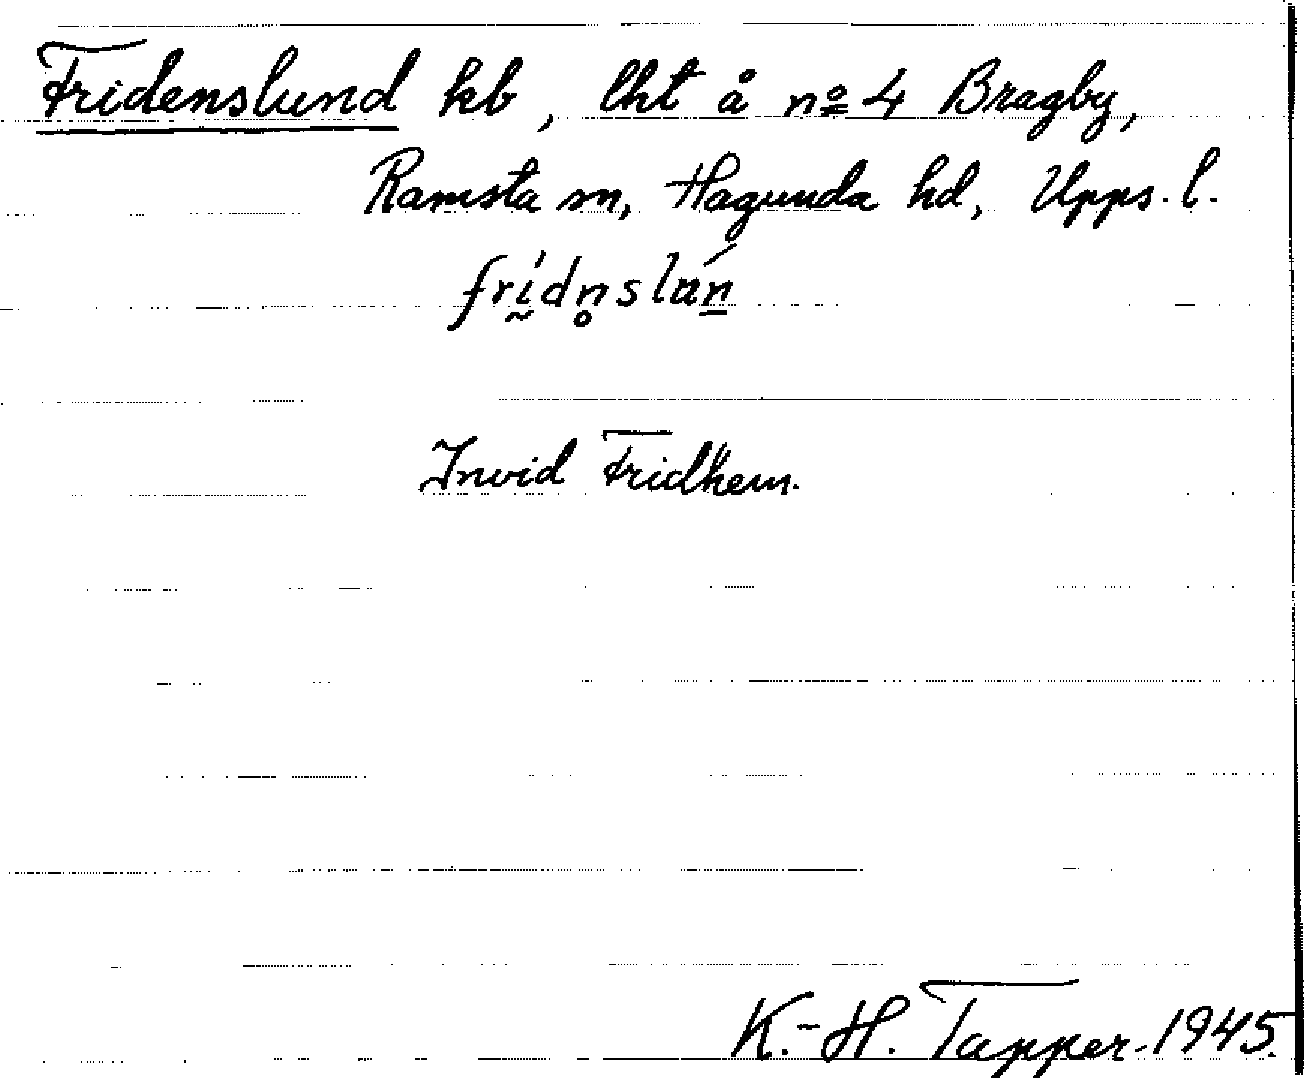 Fridenslund kb, lht å nº 4 Bragby,
Ramsta sn, Hagunda hd, Upps. l.
frḭ́dn̥slań̲
Invid Fridhem.
K.-H. Tapper. 1945.